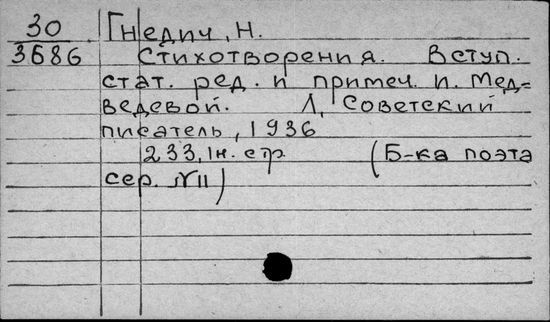 30 Гнедич, Н.
3686 Стихотворения. Вступ.
стат. ред. и примеч. И. Мед=
ведевой. Л, Советский
писатель, 1936
233, 1н. стр. (Б-ка поэта
сер. №11)